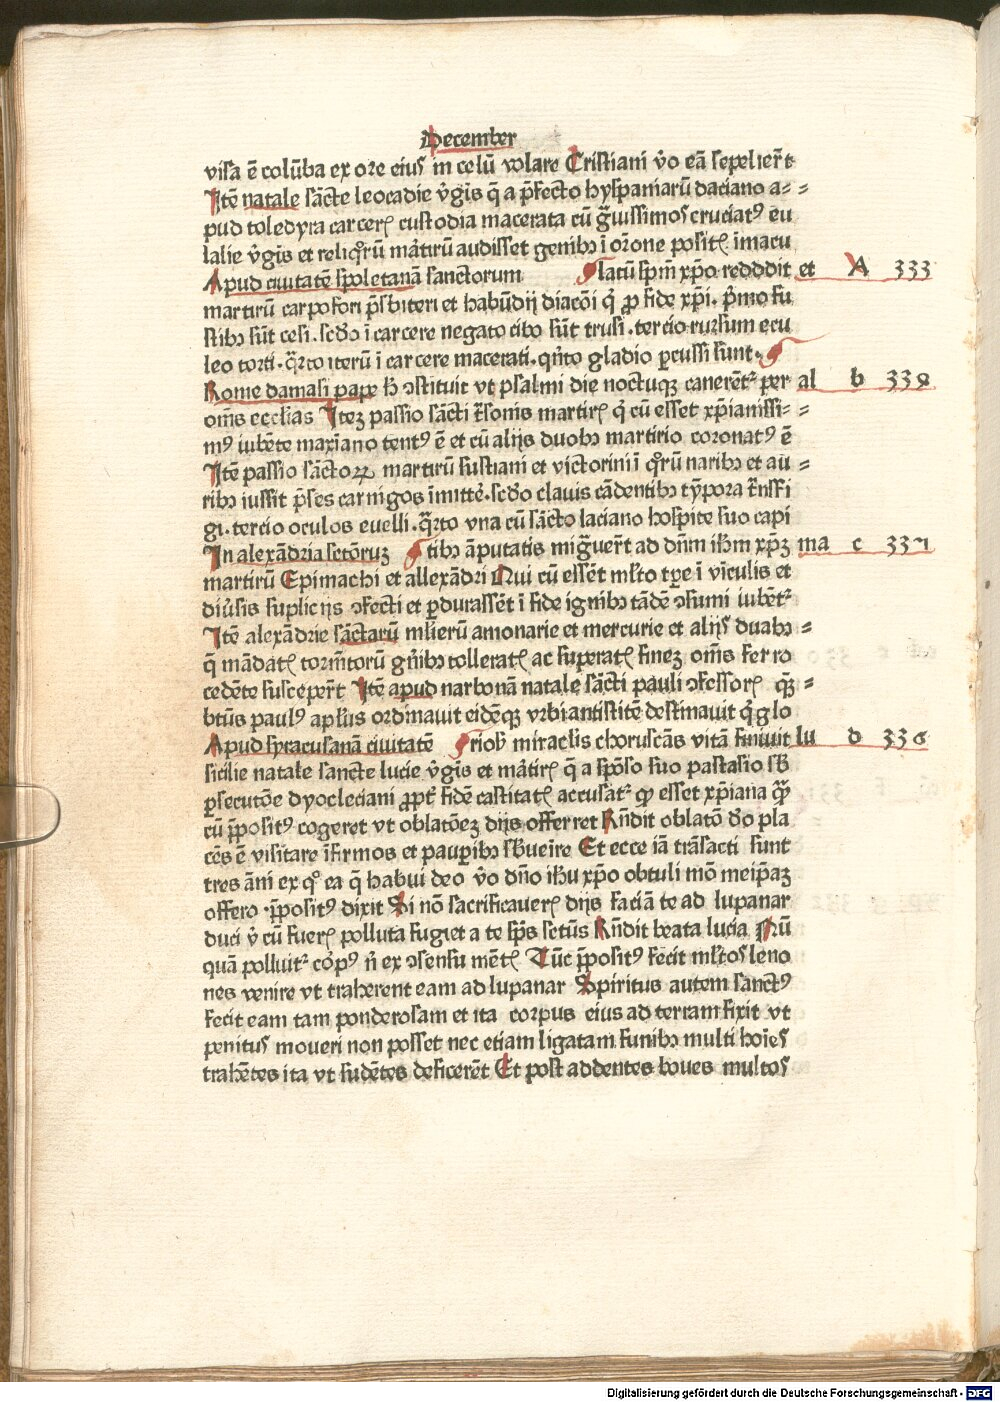 December
visa ē colūba ex ore eius in celū volare Cristiani v̄o eā sepelier̄t
Itē natale sācte leocadie v̄gīs q̄ a p̄fecto hyspaniarū daciano a=
pud toledyra carcerꝭ custodia macerata cū ḡuissimos cruciatꝰ eu
lalie v̄gīs et reliq̄rū māt̄irū audisset genibꝫ ī or̄one positꝭ īmacu
Apud ciuitatē spoletanā sanctorum latū spm̄ xp̄o redddit et A 333
martirū carpofori p̄sbiteri et habūdij diacōi q̄ ꝓ fide xp̄i. p̄mo fu
stibꝫ sūt cesi. scd̄o ī carcere negato cibo sūt trusi. tercio rursum ecu
leo torti. q̄rto iterū ī carcere macerati. qn̄to gladio ꝑcussi sunt.
Rome damasi pape h̄ ꝯstituit vt psalmi die noctuqꝫ canerēt᷑ per al b 338
om̄s ecclīas Iteꝫ passio sācti t̄sonis martirꝭ q̄ cū esset xp̄ianissi=
mꝰ iubēte maxīano tentꝰ ē et cū alijs duobꝫ martirio coronatꝰ ē
Itē passio sāctoꝝ martirū fustiani et victorini ī q̄rū naribꝫ et au=
ribꝫ iussit p̄ses carnigos īmittē. scd̄o clauis cādentibꝫ tȳpora t̄nsfi
gi. tercio oculos euelli. q̄rto vna cū sācto laciano hospite suo capi
In alexādria sctōruꝫ tibꝫ āputatis miḡuer̄t ad dn̄m ih̄m xp̄ꝫ ma c 337
martirū Epimachi et allexādri Qui cū essēt ml̄to tꝑe ī vīculis et
diu̓sis suplicijs ꝯfecti et ꝑdurassēt ī fide ignibꝫ tādē ꝯsumi iubēt᷑
Itē alexādrie sāctarū ml̓ierū amonarie et mercurie et alijs duabꝫ=
q̄ mādatꝭ torm̄torū gn̄ibꝫ tolleratꝭ ac superatꝭ fineꝫ om̄s ferro
cedēte susceper̄t Itē apud narbonā natale sācti pauli ꝯfessorꝭ q̄ꝫ=
btūs paulꝰ apl̄us ordinauit eidēqꝫ vrbi antistitē destinauit q̄ glo
Apud syracusanā ciuitatē rioẜ miracl̄is choruscās vitā finiuit lu d 336
sicilie natale sancte lucie v̄gīs et māt̄irꝭ q̄ a spōso suo pastasio sb̄
ꝑsecutōe dyocleciani ꝓpt̄ fidē castitatꝭ accusat᷑ ꝙ esset xp̄iana q̄ꝫ
cū p̄positꝰ cogeret vt oblatōeꝫ dijs offerret Rn̄dit oblatō d̄o pla
cēs ē visitare īfirmos et pauꝑibꝫ sb̄ueīre Et ecce iā trāsacti sunt
tres āni ex q̊ ea q̄ habui deo v̄o dn̄o ih̄u xp̄o obtuli mō meip̄aꝫ
offero. p̄positꝰ dixit Si nō sacrificauerꝭ dijs faciā te ad lupanar
duci v̓ cū fuerꝭ polluta fugiet a te sp̄s sctūs Rn̄dit beata lucia Nū
quā polluit᷑ cōpꝰ n̄ ex ꝯsensu mētꝭ Tūc p̄positꝰ fecit ml̄tos leno
nes venire vt traherent eam ad lupanar Spiritus autem sanctꝰ
fecit eam tam ponderosam et ita corpus eius ad terram fixit vt
penitus moueri non posset nec etiam ligatam funibꝫ multi hoīes
trahētes ita vt sudētes deficerēt Et post addentes boues multos
Digitalisierung gefördert durch die Deutsche Forschungsgemeinschaft - DFG